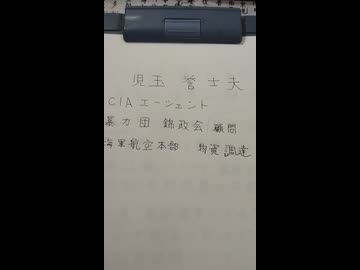 児玉 誉士夫
CIA エージェント
暴力団 錦政会 顧問
海軍航空本部 物資調達